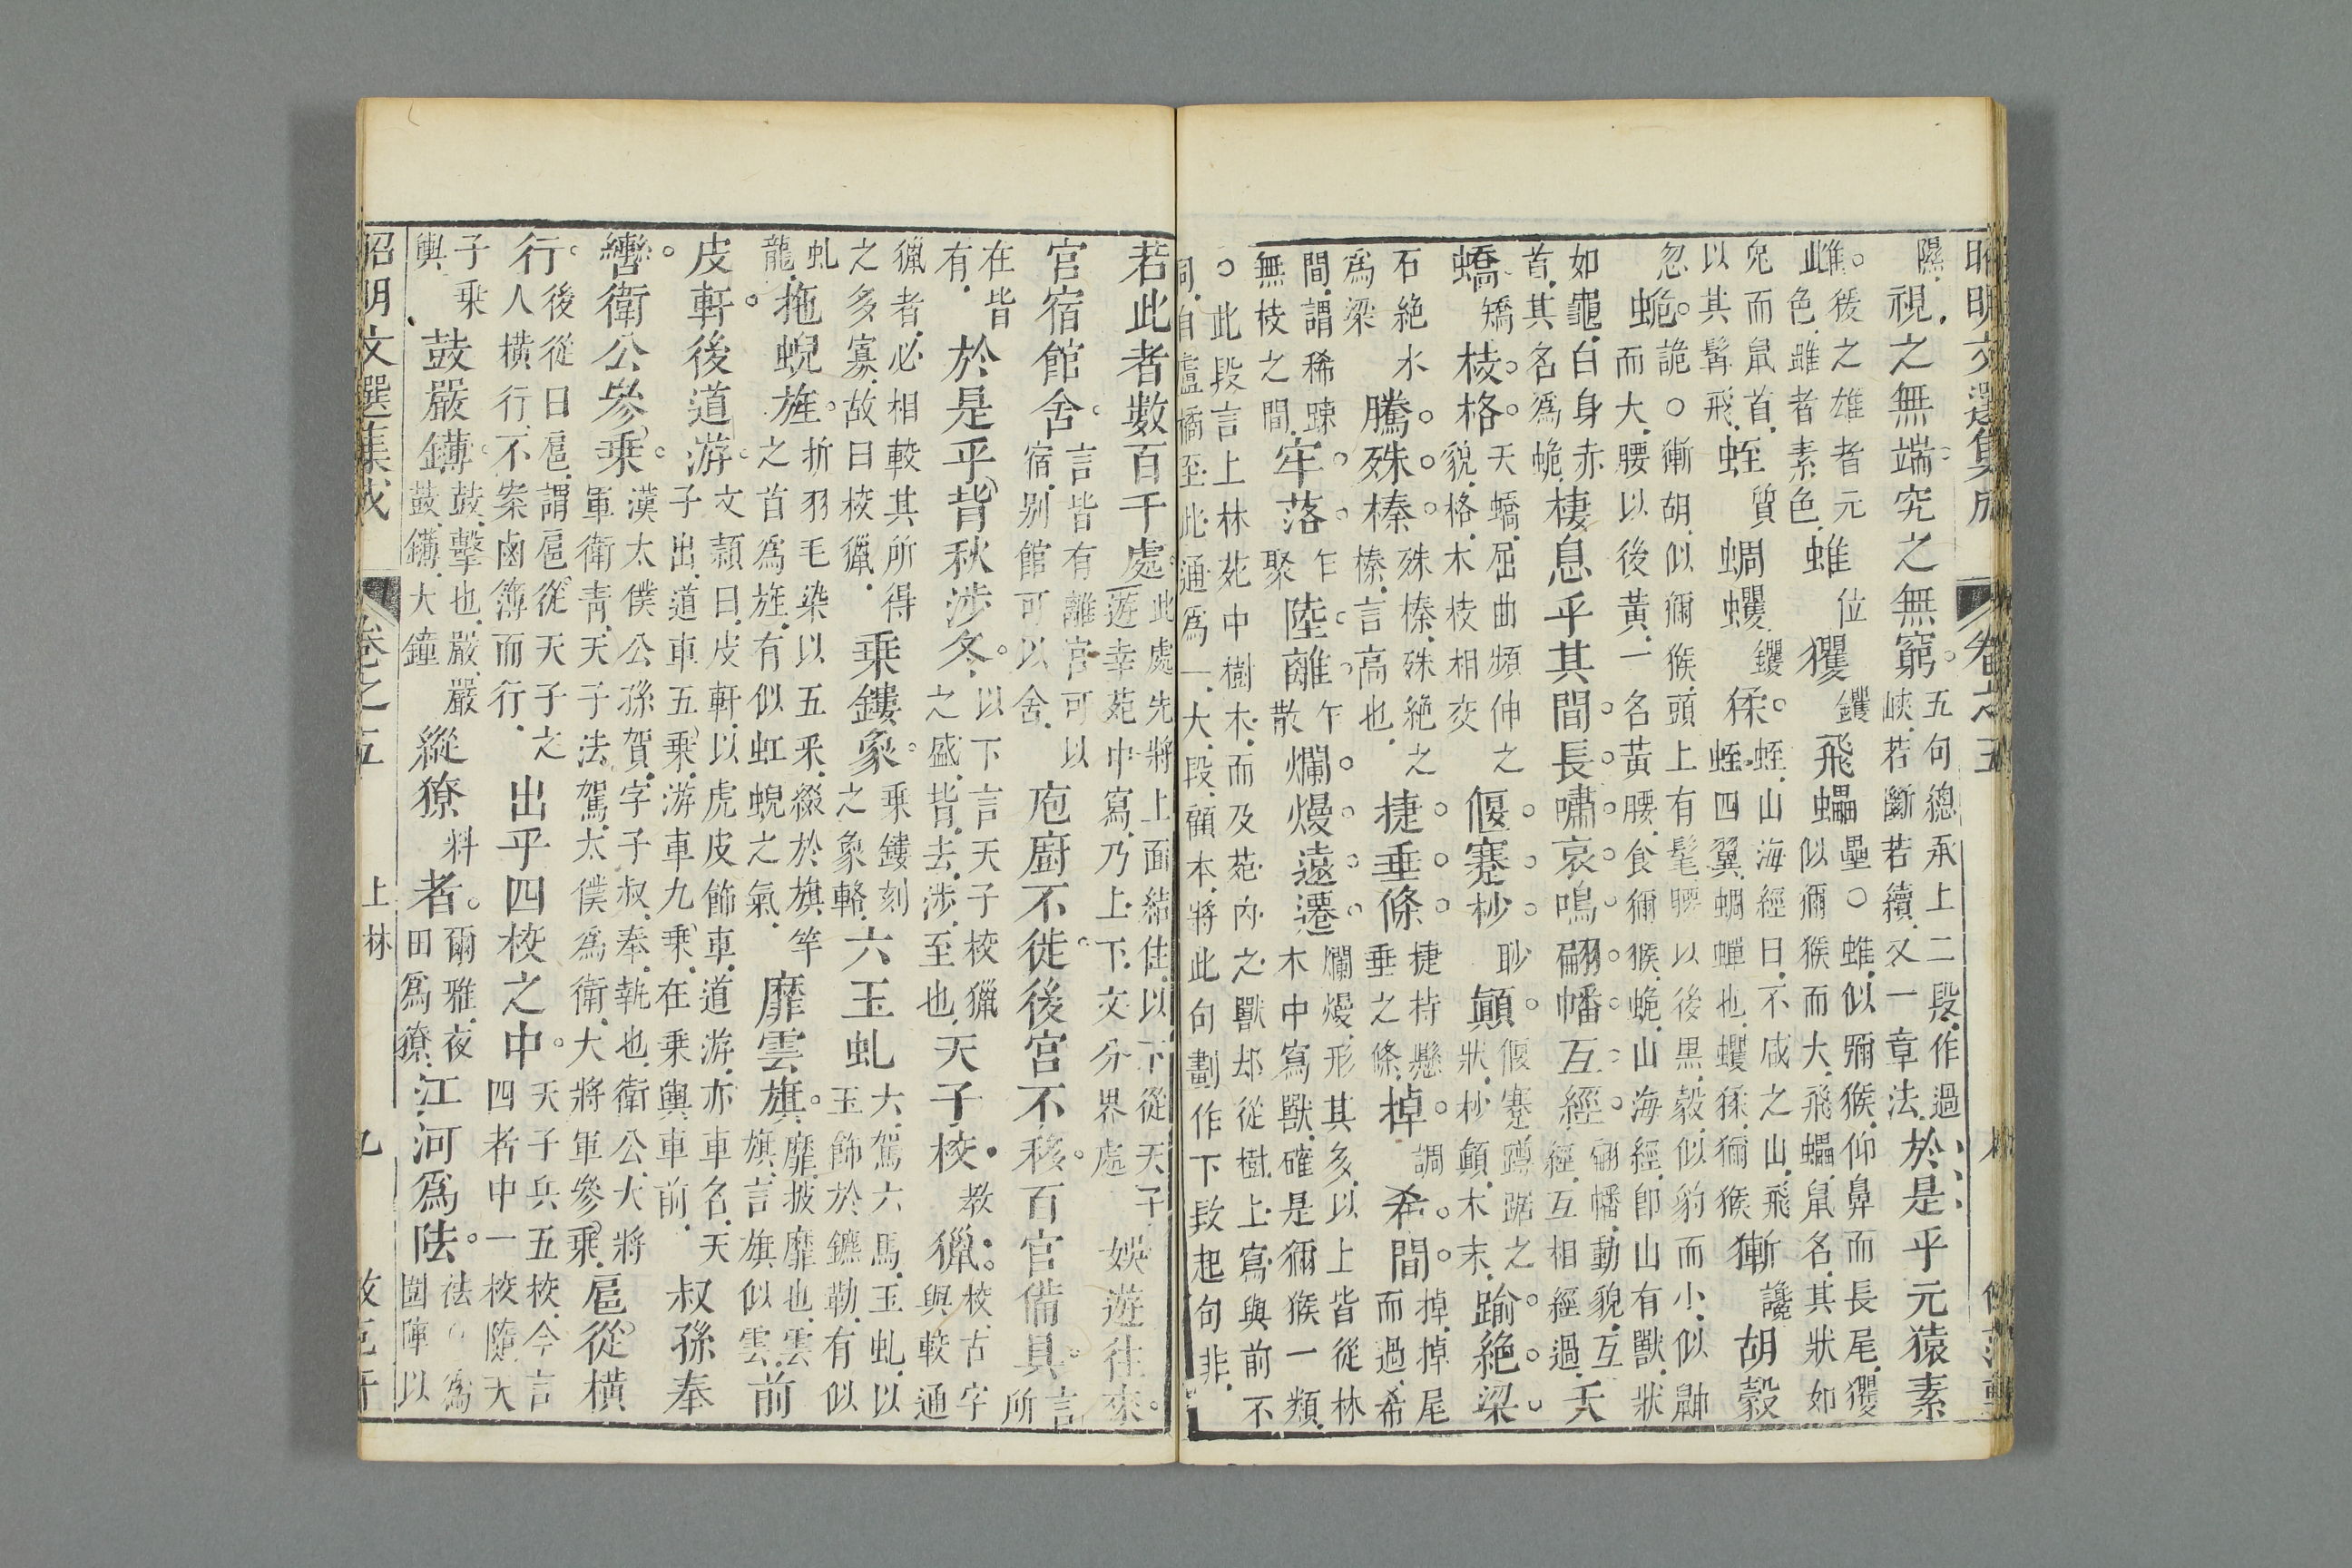 昭明文選集成　卷之五
隰視之無端究之無窮五句總承上二段作過峽若斷若續又一章法於是乎元猿素
雌猨之雄者元色雌者素色蜼位玃钁飛蠝壘○蜼似獼猴仰鼻而長尾玃似獼猴而大飛蠝鼠名其狀如
兔而鼠首以其髯飛蛭質蜩蠼钁猱蛭山海經曰不咸之山飛蛭四翼蜩蟬也蠼猱獼猴獑讒胡豰
忽蛫詭○獑胡似獼猴頭上有髦腰以後黑豰似豹而小似鼬而大腰以後黃一名黃腰食獼猴蛫山海經經即山有獸狀
如龜白身赤首其名為蛫棲息乎其間長嘯哀鳴翩幡互經翩幡動貌互經互相經過夭
蟜矯枝格天蟜屈曲頻伸之貌格木枝相交偃蹇杪眇顛偃蹇蹲踞之狀杪顛木末踰絕梁
石絕水為梁騰殊榛殊榛殊絕之榛言高也捷垂條捷持懸垂之條掉調希間掉掉尾而過希
間謂稀踈無枝之間牢落乍聚陸離乍散爛熳遠遷爛熳形其多以上皆從林木中寫獸確是獼猴一類
○此段言上林苑中樹木而及苑內之獸却從樹上寫與前不同自盧橘至此通為一大段顧本將此句劃作下段起句非
若此者數百千處此處先將上面結住以下從天子遊幸苑中寫乃上下交分界處娛遊往來
宮宿館舍言皆有離宮可以宿別館可以舍庖廚不徙後宮不移百官備具言所
在皆有於是乎背秋涉冬以下言天子校獵之盛背去涉至也天子校教獵校古字與較通
獵者必相較其所得之多寡故曰校獵乗鏤象乗鏤刻之象輅六玉虬六駕六馬玉虬以玉飾於鑣勒有似
虬龍拖蜺旌折羽毛染以五釆綴於旗竿之首為旌有似虹蜺之氣靡雲旗靡披靡也雲旗言旗似雲前
皮軒後道游文頴曰皮軒以虎皮飾車道游亦車名天子出道車五乗游車九乗在乗輿車前叔孫奉
轡衛公參乗漢太僕公孫賀字子叔奉執也衛公大將軍衛青天子法駕太僕為衛大將軍參乗扈從橫
行後從曰扈謂扈從天子之人橫行不案鹵簿而行出乎四校之中天子兵五校今言四者中一校隨天
子乗輿鼓嚴鏄鼓擊也嚴嚴鼓鏄大鐘縱獠料者爾雅夜田為獠江河為阹阹為圍陣以
昭明文選集成　卷之五　上林　九